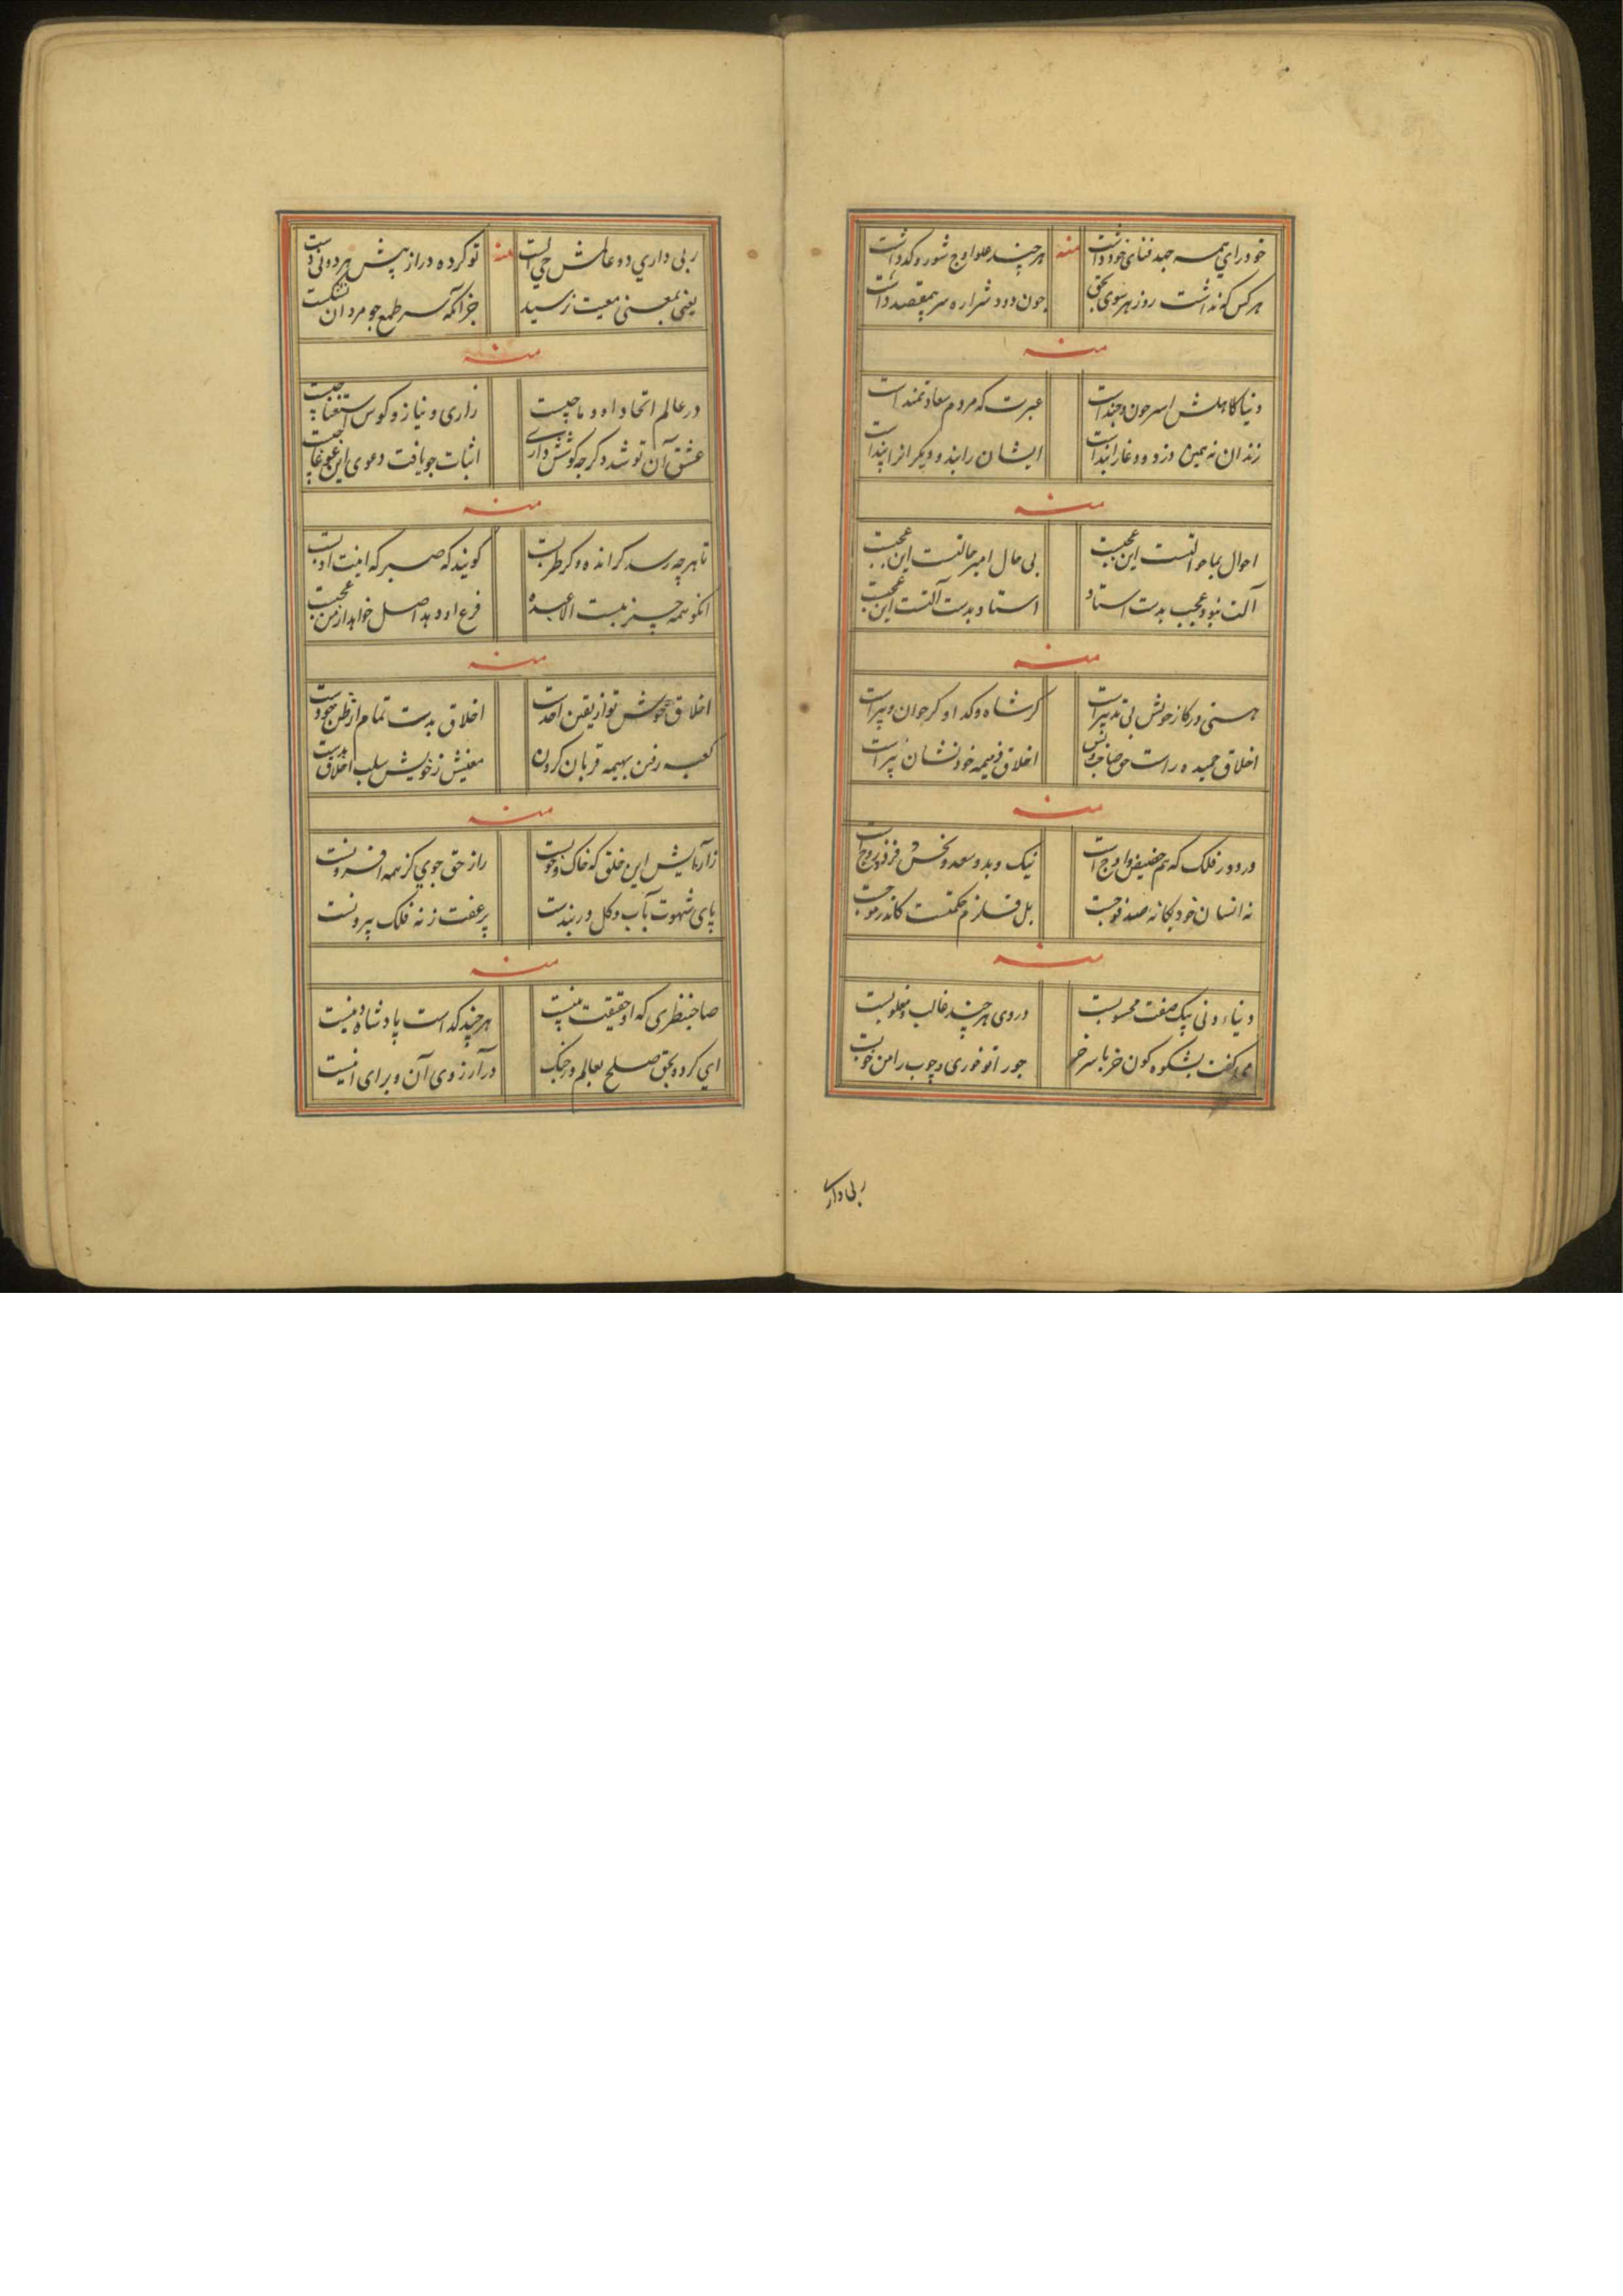 خودرای همه جهد فنای خود داشت منه هرچند علو اوج شور و کد داشت
هرکس که نداشت روز هر سوی بحق چون دود شراره سر بمقصد داشت
منه
دنیا کاهلش اسیر چون و چند است عبرت که مردم سعادتمند است
زندان نه همین دزد و دغا را بند است ایشان را بند و دیگرانرا پند است
منه
احوال بما حوالتست این عجبست بی حال امیر حالتست این عجبست
آلت نبود عجب بدست استاد استاد بدست آلتست این عجبست
منه
هستی در کار خویش بی تدبیر است گر شاه و گدا و گر جوان و پیر است
اخلاق حمیده راست حق صاحب و بس اخلاق ذمیمه خود نشان پیر است
منه
در دور فلک که هم حضیض و اوج است نیک و بد و سعد و نحس و فرد و زوج است
نه انسان خود یگانه صد فوجست بل قلزم حکمتست کاندر موجست
منه
دنیاء دنی بیک صفت محسوبست در وی هرچند غالب و مغلوبست
می گفت بشکوه کون خر با سر خر جو را تو خوری و چوب را من خوبست
ربی داری
ربی داری دو عالمش حی الست منه تو کرده دراز پیش هر دونی دست
یعنی بمعنی معیت نرسید جز آنکه سر طمع چو مردان بشکست
منه
در عالم اتحاد او و ما چیست زاری و نیاز و کوس استغنا چیست
عشق آن تو شد و گرچه کوشش داری اثبات چو یافت دعوی این غوغا چیست
منه
تا هرچه رسد گر انده و گر طربست گویند که صبر که اینت ادبست
انکو همه چیز نیست الا عبده فرع او و بد اصل خواهد از من عجبست
منه
اخلاق خوش تو از یقین احدست اخلاق بدت تمام از ظن خودست
کعبه رفتن بهیمه قربان کردن معنیش ز خویش سلب اخلاق بدست
منه
ز آرایش این خلق که خاک و خونست راز حق جوی کز همه افزونست
پای شهوت بآب و گل در بندست پر عفت ز نه فلک بیرونست
منه
صاحبنظری که او حقیقت بینست هرچند گداست پادشاه دینست
ای کرده بحق صلح بعالم در جنگ در آرزوی آن و برای اینست